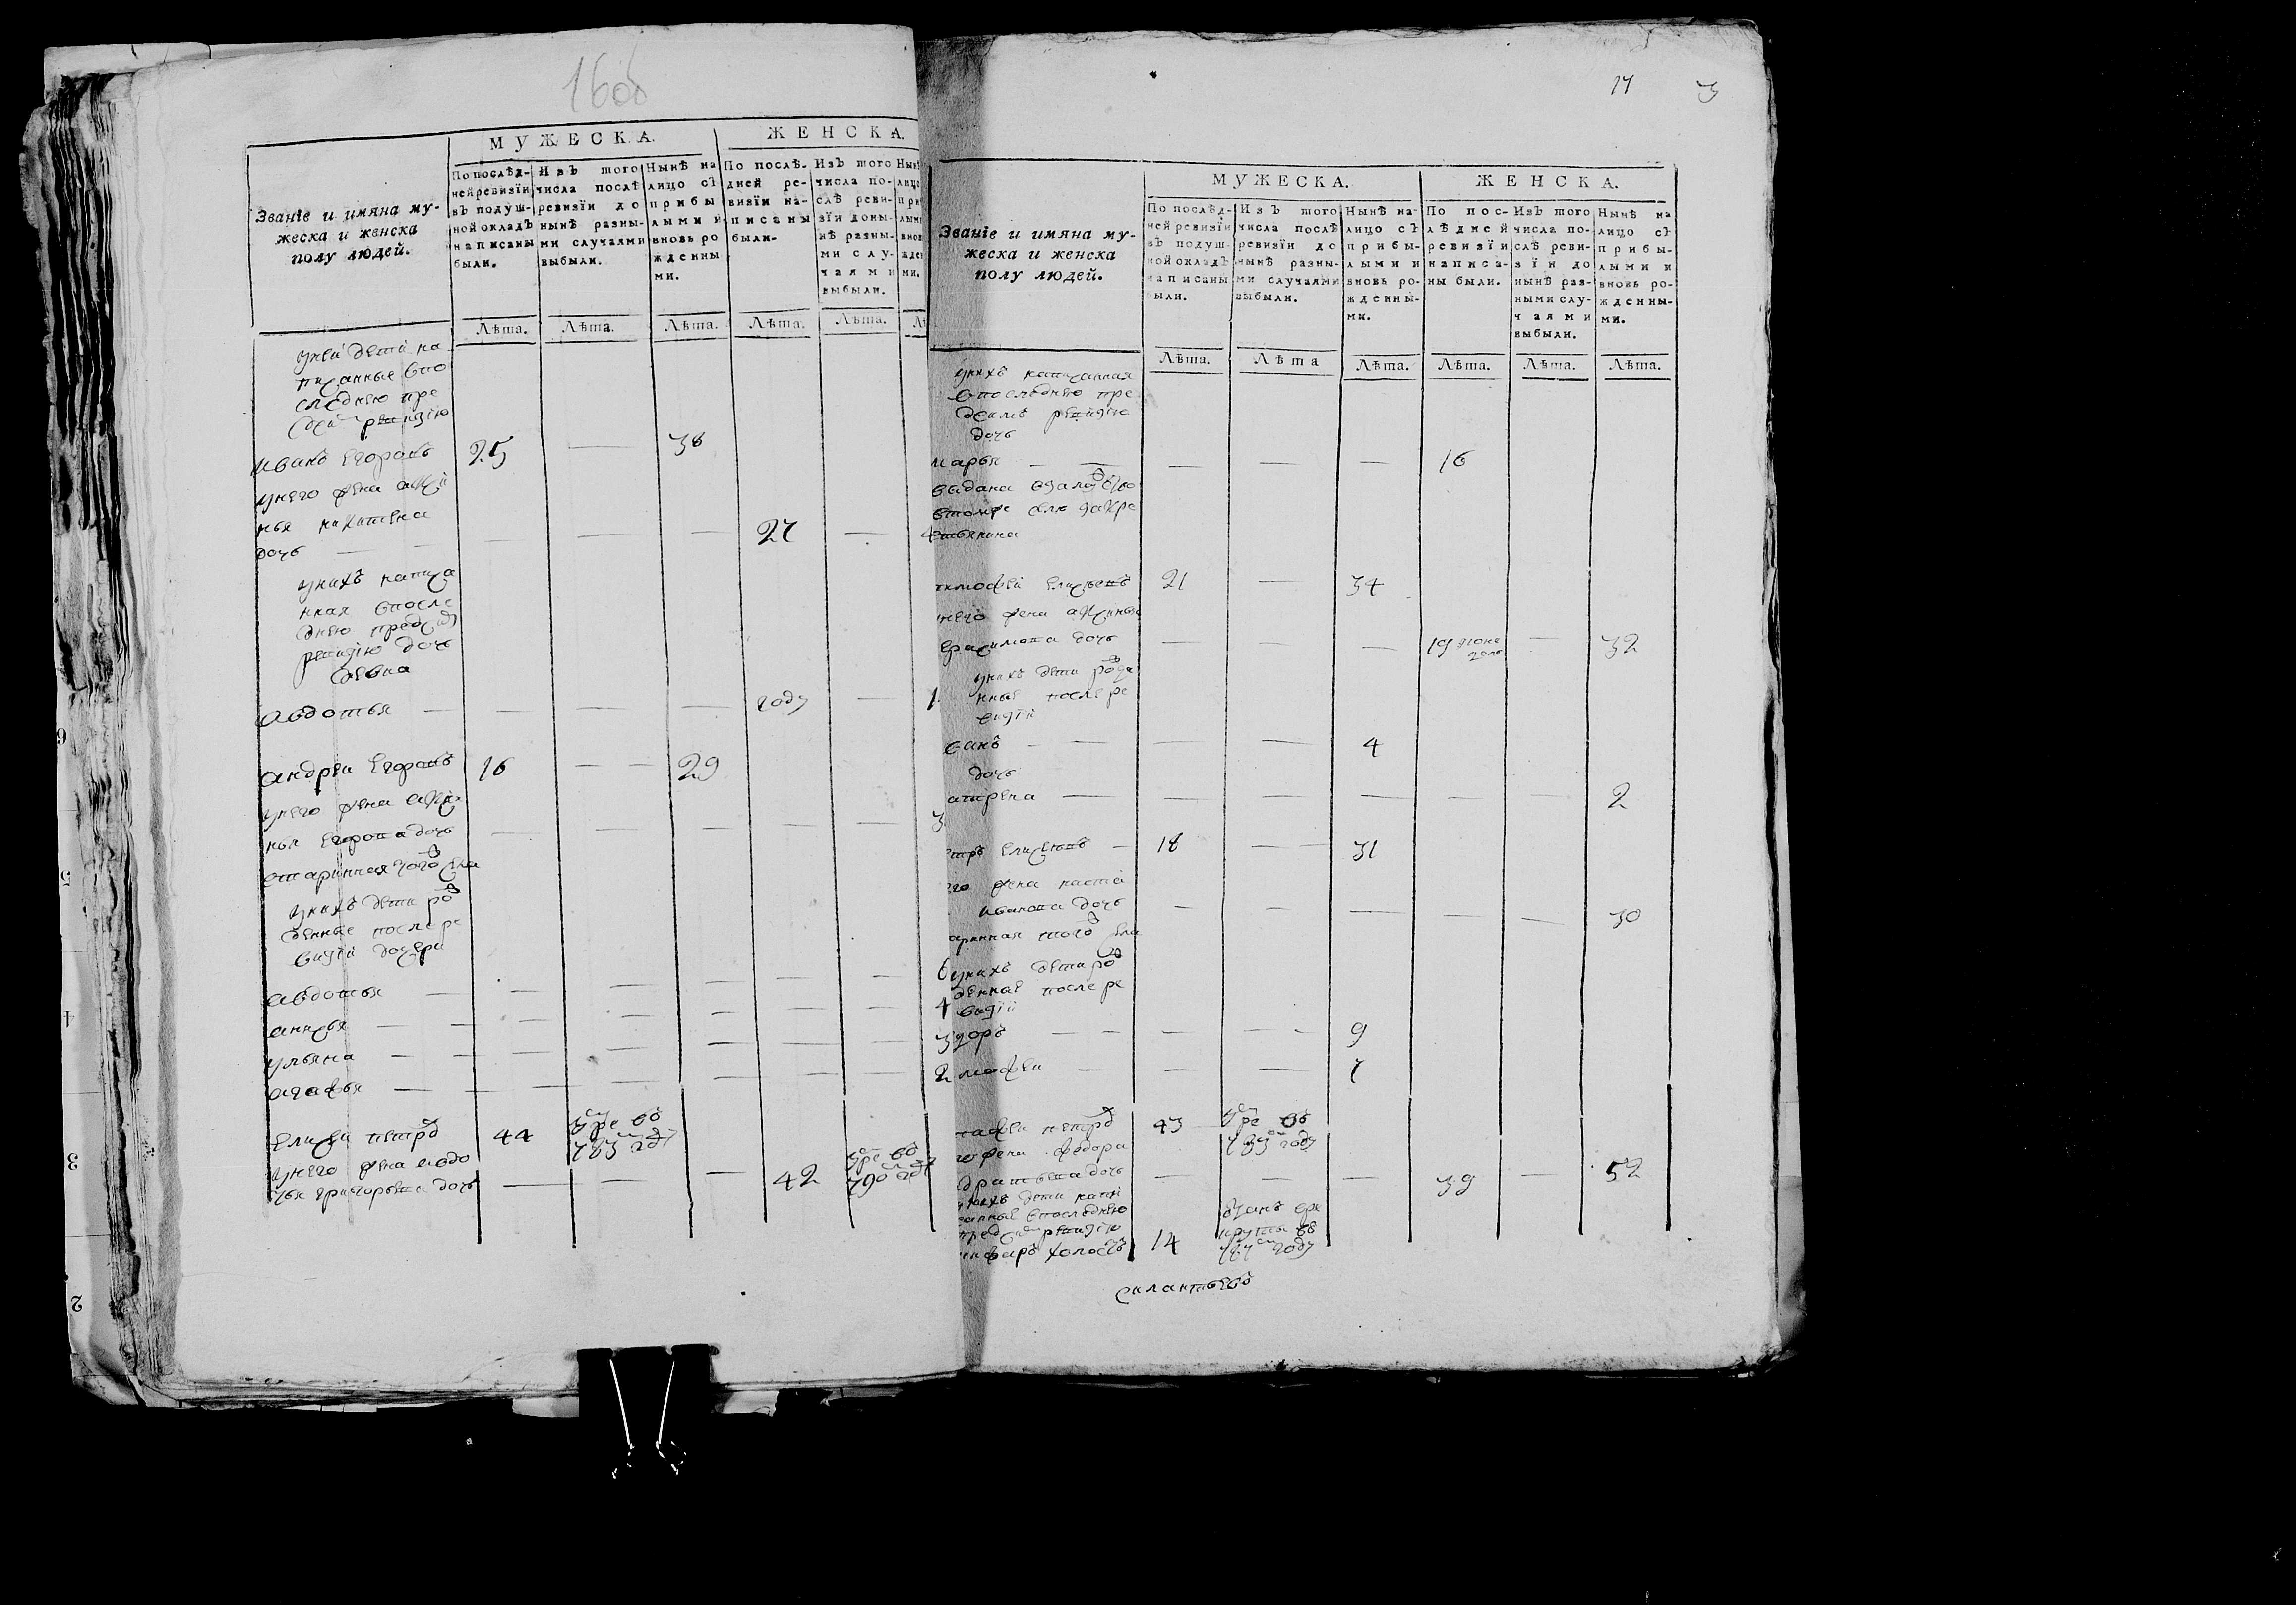 16об
МУЖЕСКА. ЖЕНСКА.
Званіе и имяна му-
жеска и женска
полу людей.
По послѣд-
ней ревизіи
въ подуш-
ной окладъ
написаны
были.
Изъ того
числа послѣ
ревизіи до
нынѣ разны-
ми случаями
выбыли.
Нынѣ на
лицо съ
прибы
лыми и
вновь ро
жденны
ми.
По послѣ-
дней ре-
визіи на-
писаны
были.
Изъ того
числа по-
слѣ реви-
зіи доны-
нѣ разны-
ми слу-
чаями
выбыли.
Лѣта. Лѣта. Лѣта. Лѣта. Лѣта.
унеи дети на
писанные впо
следнею пре
ревизию
иванъ егоровъ 25 — 38
унего жена акси
нья
дочь — — — — — 27 —
унихъ написа
нная впосле
днею пред
ревизию дочь
девка
авдотья — — — — году —
андреи егоровъ 16 — — 29
унего жена акси
нья егорова дочь — — — — —
старинная того села
унихъ дети рож
денные после ре
визіи дочери
авдотья — — — — — — 6
анисья — — — — — — 4
ульяна — — — — — — 3
агафья — — — — — — 2
елисеи петров 44 умре въ 783м году
унего жена авдо
тья григорьева дочь — — — 42 умре въ 790м году
17 3
МУЖЕСКА. ЖЕНСКА.
Званіе и имяна му-
жеска и женска
полу людей.
По послѣд-
ней ревизіи
въ подуш-
ной окладъ
написаны
были.
Изъ того
числа послѣ
ревизіи до
нынѣ разны-
ми случаями
выбыли.
Нынѣ на-
лицо съ
прибы-
лыми и
вновь ро-
жденны-
ми.
По пос-
лѣдней
ревизіи
написа-
ны были.
Изъ того
числа по-
слѣ реви-
зіи до
нынѣ раз-
ными слу-
чаями
выбыли.
Нынѣ на
лицо съ
прибы-
лыми и
вновь ро-
жденны-
ми.
Лѣта. Лѣта Лѣта. Лѣта. Лѣта. Лѣта.
унихъ написанная
впоследнею пре
ревизию
дочь
марья — — — — — 16
выдана взамужство
втомже селе за кре
стьянина
тимофеи елисеевъ 21 — 34
него жена аксинья
ерасимова дочь — — — 19 — 32
унихъ дети рожде
нные после ре
визіи
ванъ — — — — 4
дочь
атрена — — — — — — 2
етръ елисеевъ — 18 — — 31
его жена наста
иванова дочь — — — — — 30
аринная того села
унихъ дети рож
денные после ре
визіи
доръ — — — — — 9
мофеи — — — 7
43 умре въ 783м году
жена федора
дратьева дочь — — — 39 — 52
нихъ дети напи
санные впоследнею
пред ревизию
холостъ 14 въ 787м году
силантьевъ